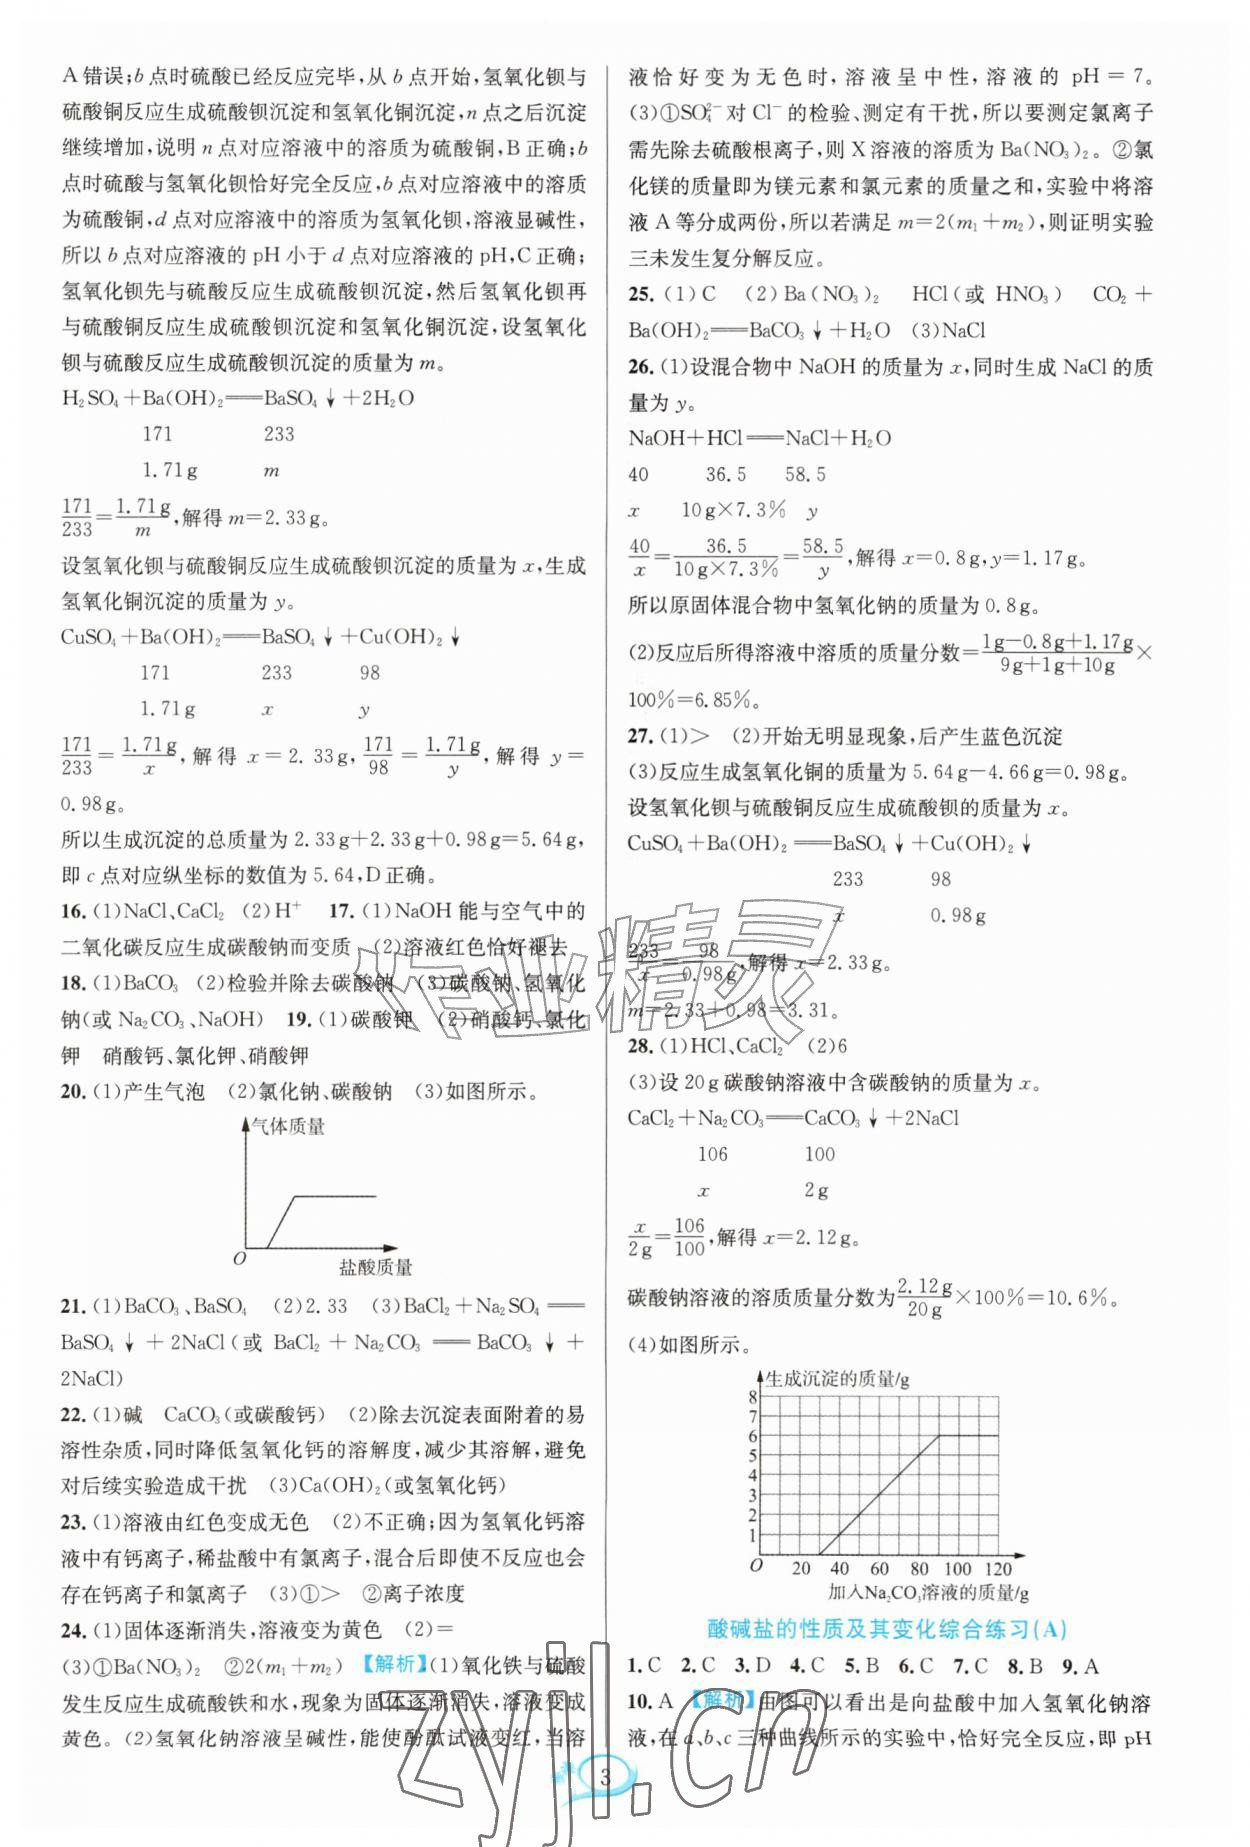 A错误;b点时硫酸已经反应完毕,从b点开始,氢氧化钡与
硫酸铜反应生成硫酸钡沉淀和氢氧化铜沉淀,n点之后沉淀
继续增加,说明n点对应溶液中的溶质为硫酸铜,B正确;b
点时硫酸与氢氧化钡恰好完全反应,b点对应溶液中的溶质
为硫酸铜,d点对应溶液中的溶质为氢氧化钡,溶液显碱性,
所以b点对应溶液的pH小于d点对应溶液的pH,C正确;
氢氧化钡先与硫酸反应生成硫酸钡沉淀,然后氢氧化钡再
与硫酸铜反应生成硫酸钡沉淀和氢氧化铜沉淀,设氢氧化
钡与硫酸反应生成硫酸钡沉淀的质量为m。
H₂SO₄+Ba(OH)₂══BaSO₄↓+2H₂O
171 233
1.71g m
171/233=1.71g/m,解得m=2.33g。
设氢氧化钡与硫酸铜反应生成硫酸钡沉淀的质量为x,生成
氢氧化铜沉淀的质量为y。
CuSO₄+Ba(OH)₂══BaSO₄↓+Cu(OH)₂↓
171 233 98
1.71g x y
171/233=1.71g/x,解得x=2.33g,171/98=1.71g/y,解得y=
0.98g。
所以生成沉淀的总质量为2.33g+2.33g+0.98g=5.64g,
即c点对应纵坐标的数值为5.64,D正确。
16.(1)NaCl、CaCl₂ (2)H⁺ 17.(1)NaOH能与空气中的
二氧化碳反应生成碳酸钠而变质 (2)溶液红色恰好褪去
18.(1)BaCO₃ (2)检验并除去碳酸钠 (3)碳酸钠、氢氧化
钠(或Na₂CO₃、NaOH) 19.(1)碳酸钾 (2)硝酸钙、氯化
钾 硝酸钙、氯化钾、硝酸钾
20.(1)产生气泡 (2)氯化钠、碳酸钠 (3)如图所示。
气体质量
O
盐酸质量
21.(1)BaCO₃、BaSO₄ (2)2.33 (3)BaCl₂+Na₂SO₄══
BaSO₄↓+2NaCl(或BaCl₂+Na₂CO₃══BaCO₃↓+
2NaCl)
22.(1)碱 CaCO₃(或碳酸钙) (2)除去沉淀表面附着的易
溶性杂质,同时降低氢氧化钙的溶解度,减少其溶解,避免
对后续实验造成干扰 (3)Ca(OH)₂(或氢氧化钙)
23.(1)溶液由红色变成无色 (2)不正确;因为氢氧化钙溶
液中有钙离子,稀盐酸中有氯离子,混合后即使不反应也会
存在钙离子和氯离子 (3)①> ②离子浓度
24.(1)固体逐渐消失,溶液变为黄色 (2)=
(3)①Ba(NO₃)₂ ②2(m₁+m₂) 【解析】(1)氧化铁与硫酸
发生反应生成硫酸铁和水,现象为固体逐渐消失,溶液变成
黄色。(2)氢氧化钠溶液呈碱性,能使酚酞试液变红,当溶
液恰好变为无色时,溶液呈中性,溶液的pH=7。
(3)①SO₄²⁻对Cl⁻的检验、测定有干扰,所以要测定氯离子
需先除去硫酸根离子,则X溶液的溶质为Ba(NO₃)₂。②氯
化镁的质量即为镁元素和氯元素的质量之和,实验中将溶
液A等分成两份,所以若满足m=2(m₁+m₂),则证明实验
三未发生复分解反应。
25.(1)C (2)Ba(NO₃)₂ HCl(或HNO₃) CO₂+
Ba(OH)₂══BaCO₃↓+H₂O (3)NaCl
26.(1)设混合物中NaOH的质量为x,同时生成NaCl的质
量为y。
NaOH+HCl══NaCl+H₂O
40 36.5 58.5
x 10g×7.3% y
40/x=36.5/10g×7.3%=58.5/y,解得x=0.8g,y=1.17g。
所以原固体混合物中氢氧化钠的质量为0.8g。
(2)反应后所得溶液中溶质的质量分数=1g-0.8g+1.17g/9g+1g+10g×
100%=6.85%。
27.(1)> (2)开始无明显现象,后产生蓝色沉淀
(3)反应生成氢氧化铜的质量为5.64g-4.66g=0.98g。
设氢氧化钡与硫酸铜反应生成硫酸钡的质量为x。
CuSO₄+Ba(OH)₂══BaSO₄↓+Cu(OH)₂↓
233 98
x 0.98g
233/x=98/0.98g,解得x=2.33g。
m=2.33+0.98=3.31。
28.(1)HCl、CaCl₂ (2)6
(3)设20g碳酸钠溶液中含碳酸钠的质量为x。
CaCl₂+Na₂CO₃══CaCO₃↓+2NaCl
106 100
x 2g
x/2g=106/100,解得x=2.12g。
碳酸钠溶液的溶质质量分数为2.12g/20g×100%=10.6%。
(4)如图所示。
生成沉淀的质量/g
8
7
6
5
4
3
2
1
O 20 40 60 80 100 120
加入Na₂CO₃溶液的质量/g
酸碱盐的性质及其变化综合练习(A)
1.C 2.C 3.D 4.C 5.C 6.C 7.C 8.B 9.A
10.A 【解析】由图可以看出是向盐酸中加入氢氧化钠溶
液,在a、b、c三种曲线所示的实验中,恰好完全反应,即pH
3
作业精灵
zyjl.cn